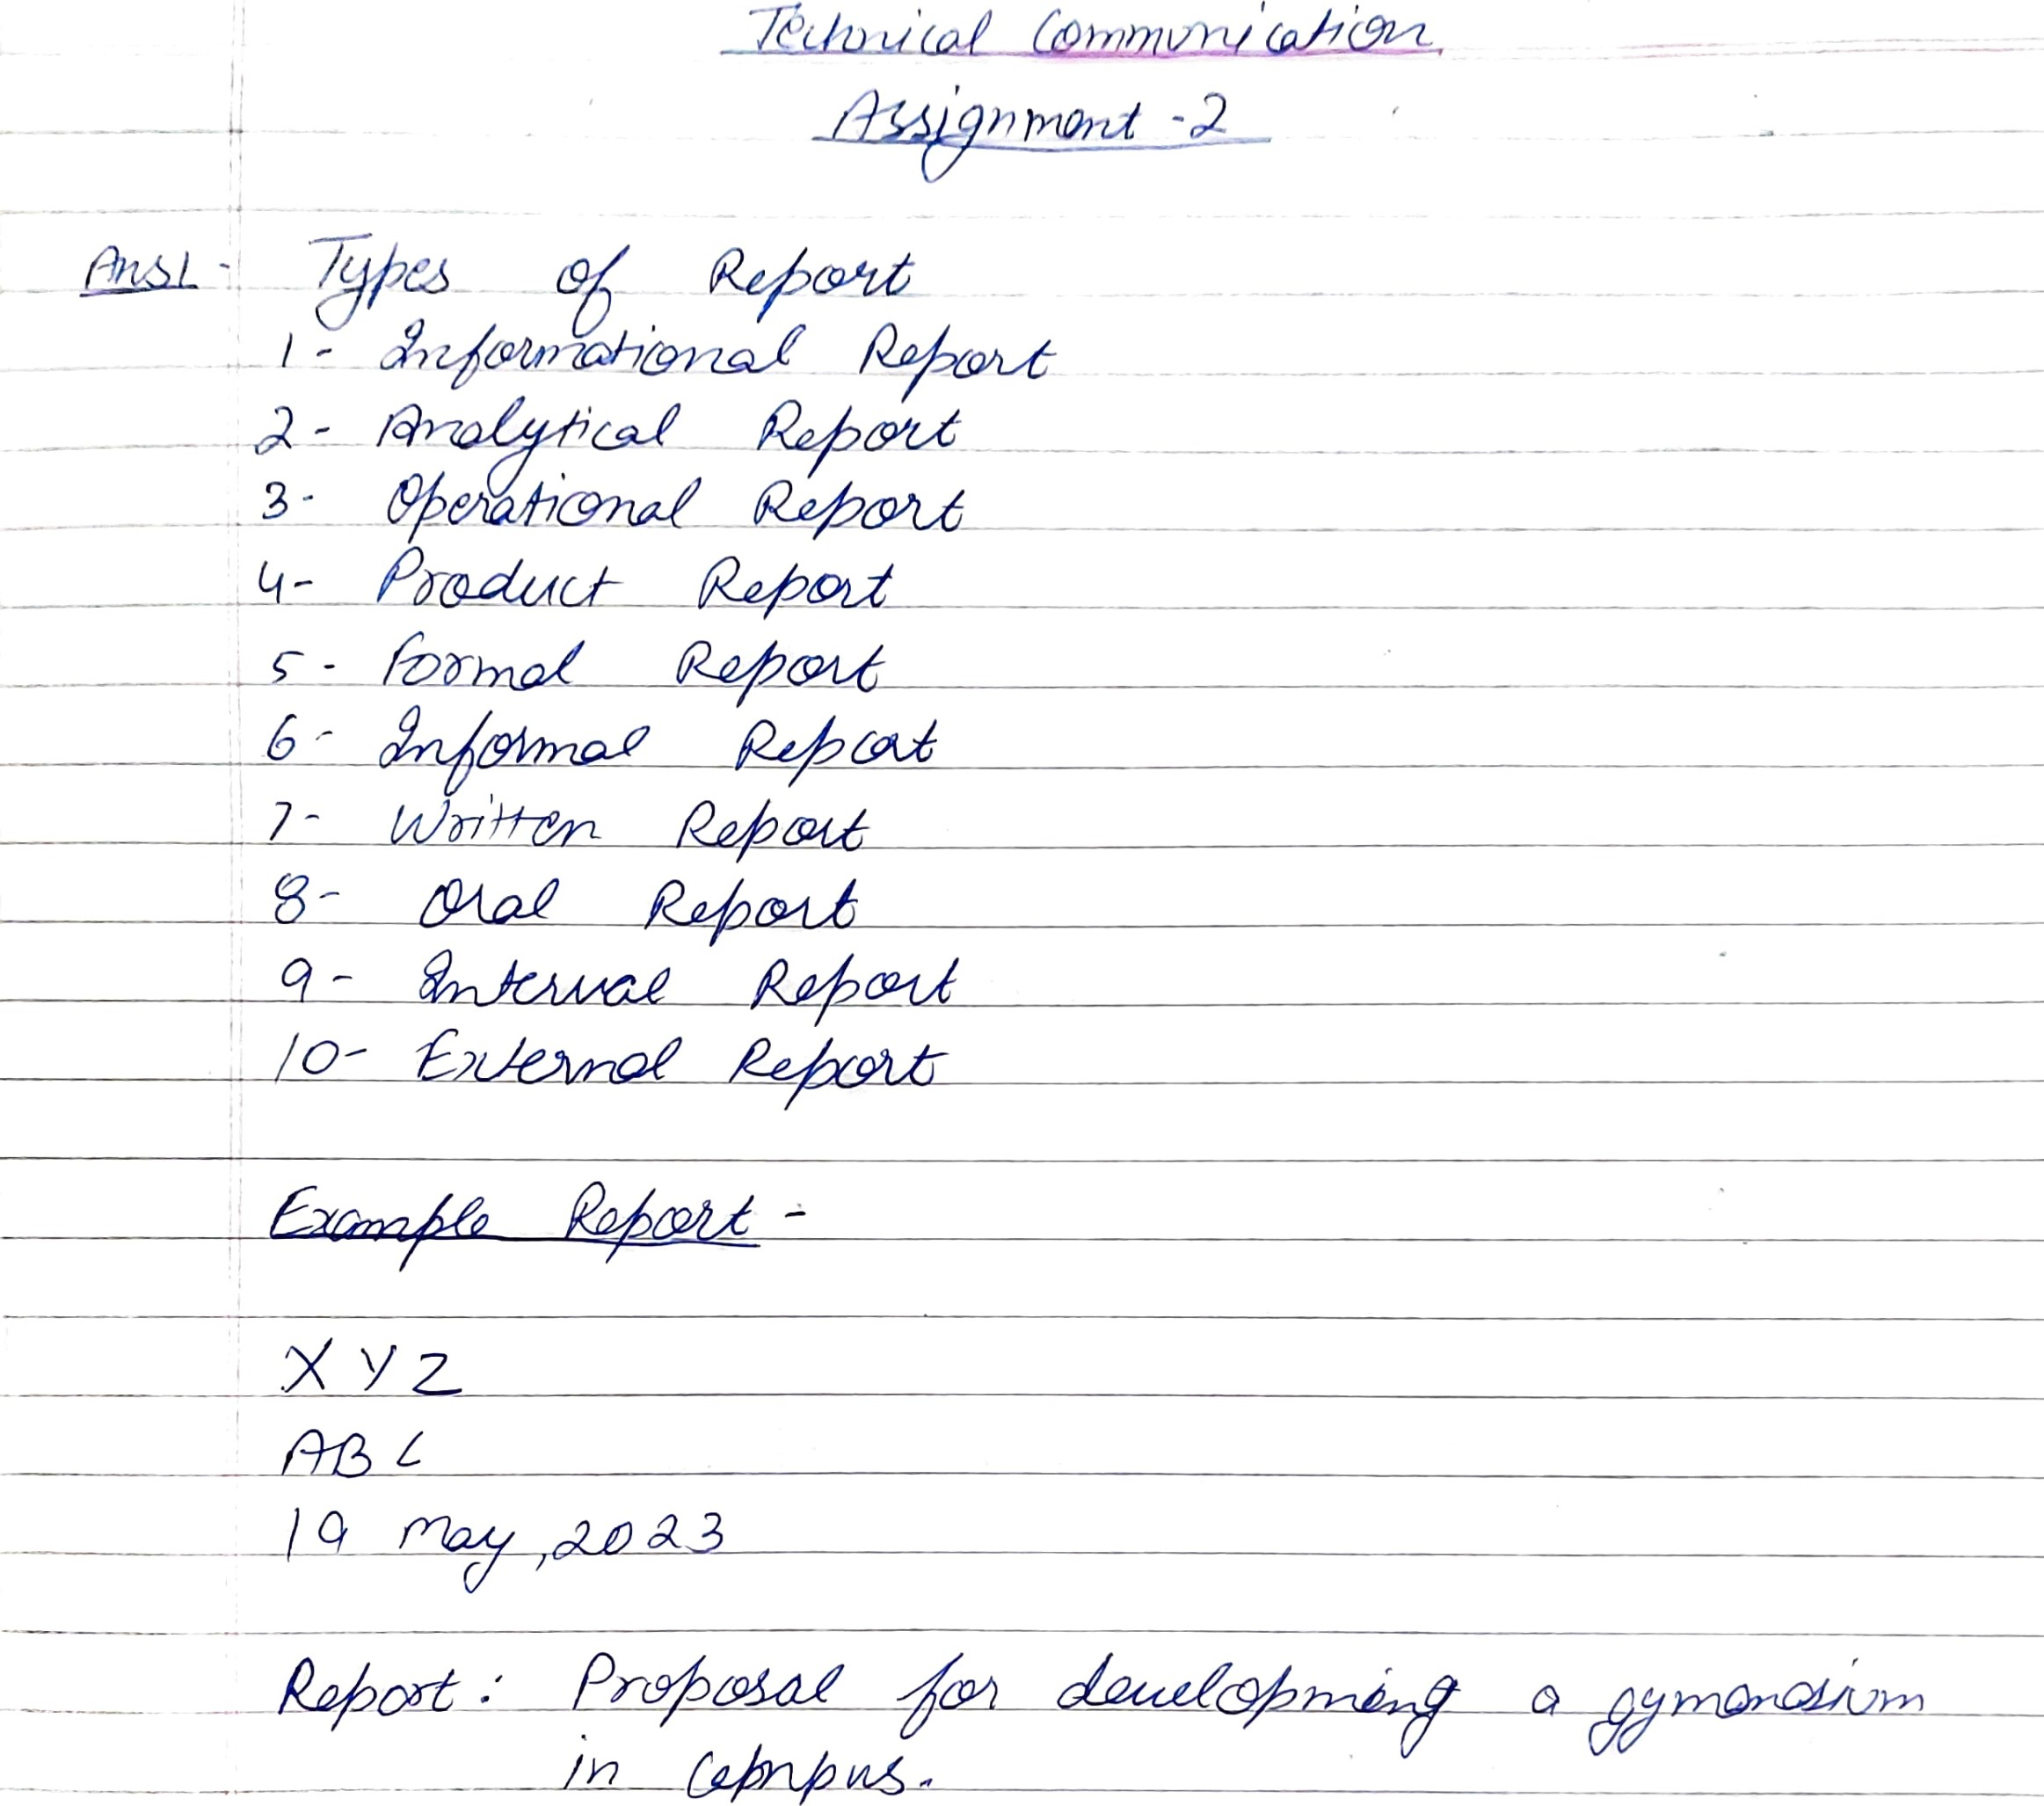 Technical Communication
Assignment -2
Ans1- Types of Report
1- Informational Report
2- Analytical Report
3- Operational Report
4- Product Report
5- Formal Report
6- Informal Report
7- Written Report
8- Oral Report
9- Internal Report
10- External Report
Example Report -
XYZ
ABC
19 May, 2023
Report: Proposal for developming a gymonasium
in campus.